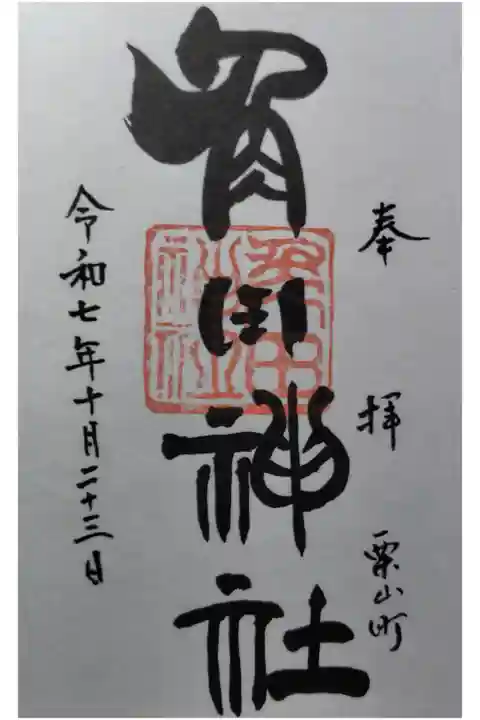 奉拝 栗山町
角田神社
令和七年十月二十三日